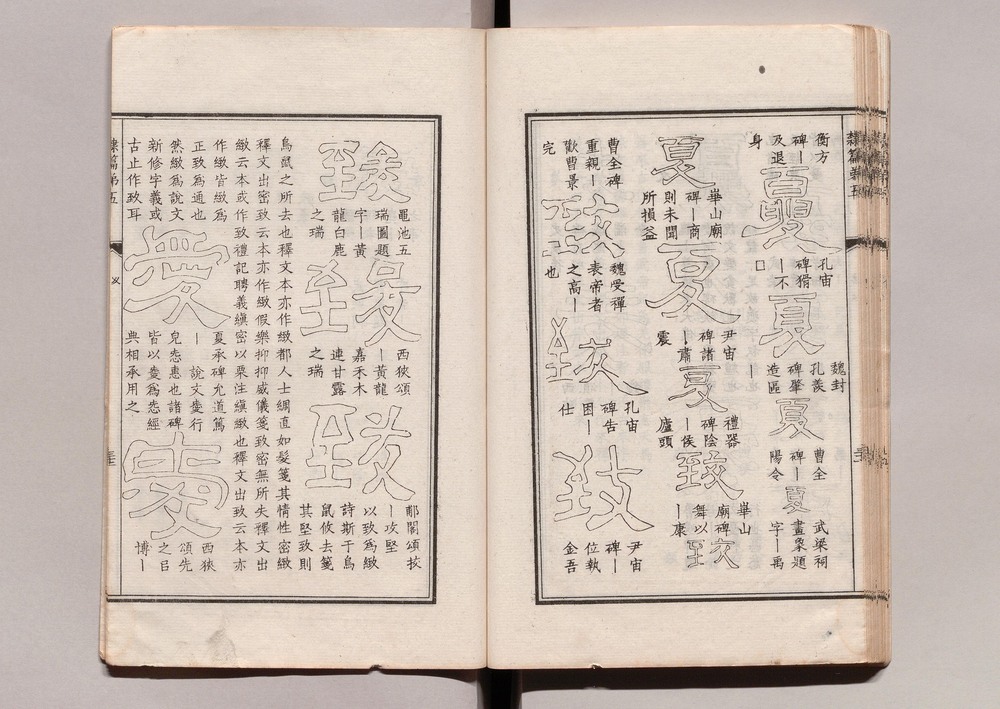 隸篇第五
衡方
碑—
及退
身
夏
孔宙
碑猾
—不
□
夏
魏封
孔羨
碑肇
造區
—
夏
曹全
碑—
陽令
夏
武梁祠
畫象題
字—禹
夏
華山廟
碑—商
則未聞
所損益
夏
尹宙
碑諸
—肅
震
夏
禮器
碑陰
—侯
廬頭
致
華山
廟碑
舞以
—康
致
曹全碑
重親—
歡曹景
完
致
魏受禪
表帝者
之高—
也
致
孔宙
碑告
困—
仕
致
尹宙
碑—
位執
金吾
致
黽池五
瑞圖題
字—黃
龍白鹿
之瑞
致
西狹頌
—黃龍
嘉禾木
連甘露
之瑞
致
郙閣頌按
—攻堅
以致為緻
詩斯干鳥
鼠攸去箋
其堅致則
鳥鼠之所去也釋文本亦作緻都人士綢直如髮箋其情性密緻
釋文出密致云本亦作緻假樂抑抑威儀箋致密無所失釋文出
緻云本或作致禮記聘義縝密以栗注縝緻也釋文出致云本亦
作緻皆緻為
正致為通也
然緻為說文
新修字義或
古止作致耳
愛
夏承碑允道篤
— 說文愛行
皃㤅惠也諸碑
皆以愛為㤅經
典相承用之
愛
西狹
頌先
之㠯
博—
隸篇第五